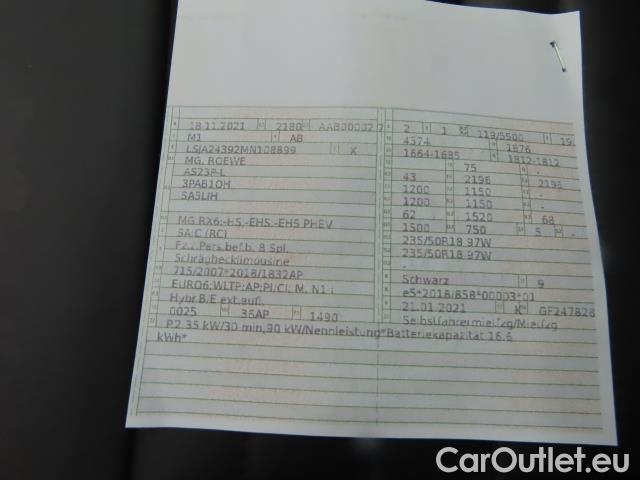 18.11.2021 2180 AAB00002 7
M1 AB
LSJA24392MN108899 X
MG, ROEWE
AS23P-L
3PAB1OH
SA5LIH
MG RX6;-HS,-EHS,-EHS PHEV
SAIC (RC)
Fz.z.Pers.bef.b. 8 Spl.
Schrägheckllimousine
715/2007*2018/1832AP
EURO6;WLTP;AP;PI/CI; M, N1 I
Hybr.B/E ext.aufl.
0025 36AP 1490
2 1 119/5500 19.
4574 1876
1664-1685 1812-1812
75 -
43 2196 2196
1200 1150 -
1200 1150 -
62 1520 68
1500 750 5 -
235/50R18 97W
235/50R18 97W
-
Schwarz 9
e5*2018/858*00003*01
21.01.2021 K GF247828
Selbstfahrermietfzg/Mietfzg
P.2 35 kW/30 min,90 kW/Nennleistung*Batteriekapazität 16.6
kWh*
CarOutlet.eu